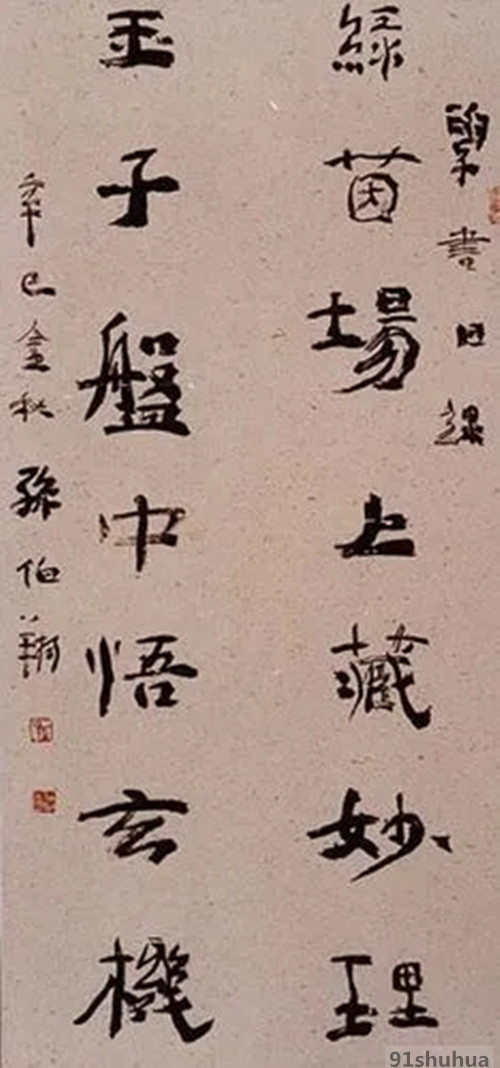 書
綠茵場上藏妙理
玉子盤中悟玄機
辛巳金秋孫伯翔
91shuhua